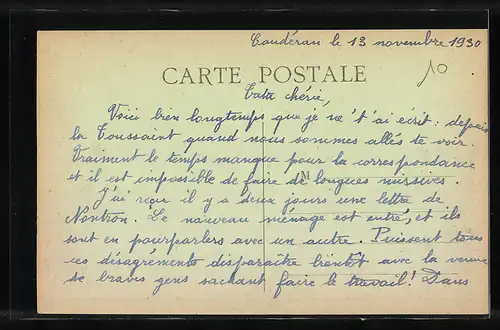 Caudéran le 13 novembre 1930
10
CARTE POSTALE
Tata chérie,
Voici bien longtemps que je ne t'ai écrit : depuis
la Toussaint quand nous sommes allés te voir.
Vraiment le temps manque pour la correspondance
et il est impossible de faire de longues missives.
J'ai reçu il y a deux jours une lettre de
Nontron. Le nouveau ménage est entré, et ils
sont en pourparlers avec un autre. Puissent tous
ces désagréments disparaître bientôt avec la venue
de braves gens sachant faire le travail ! Dans